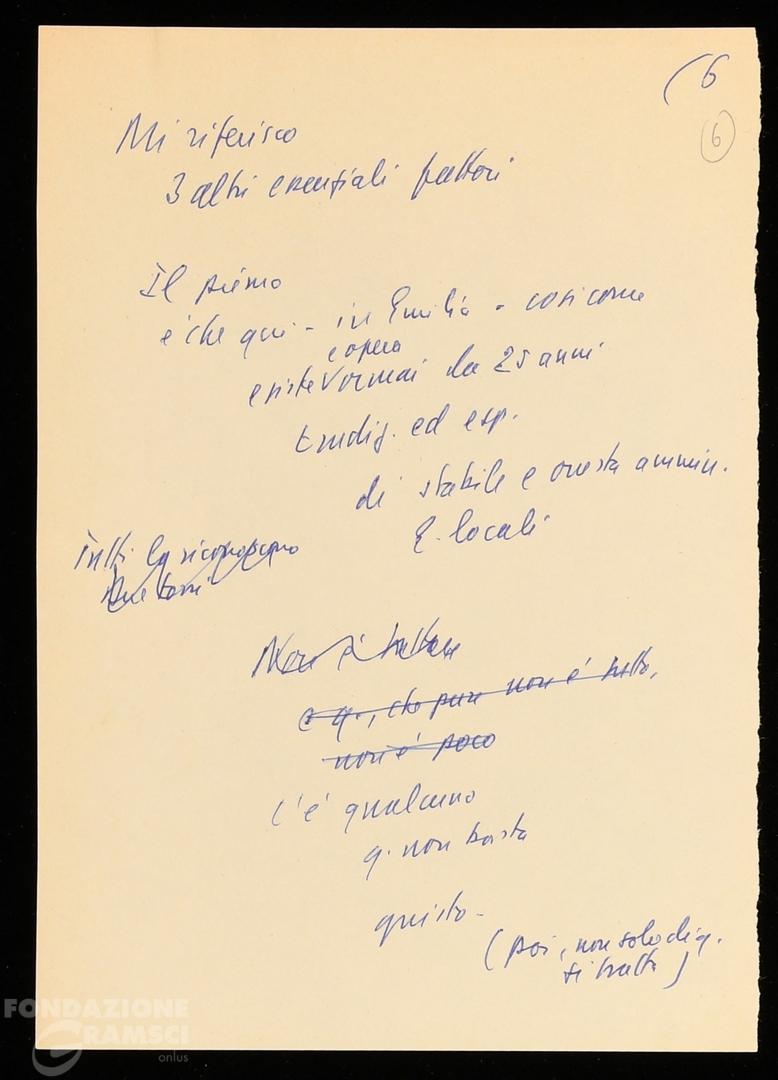 (6
6
Mi riferisco
3 altri essenziali fattori
Il primo
è che qui - in Emilia - così come
e opera
esiste V ormai da 25 anni
tradiz. ed esp.
di stabile e onesta ammin.
E. locali
Tutti lo riconoscono
Non si tratta
e q., che pure non è tutto,
non è poco
C'è qualcuno
q. non basta
giusto -
(poi, non solo di q.
si tratta)
FONDAZIONE
GRAMSCI
onlus